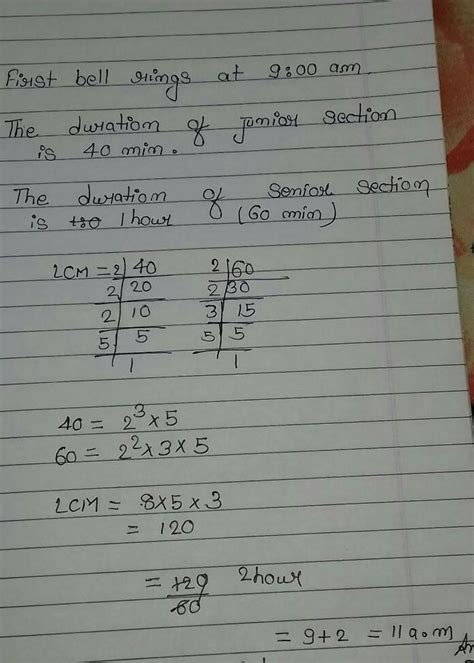 First bell rings at 9:00 am.
The duration of junior section
is 40 min.
The duration of senior section
is 1 hour (60 min)
LCM = 2 | 40 2 | 60
2 | 20 2 | 30
2 | 10 3 | 15
5 | 5 5 | 5
1 1
40 = 2³ × 5
60 = 2² × 3 × 5
LCM = 8 × 5 × 3
= 120
= 120 2 hour
60
= 9 + 2 = 11 a.m